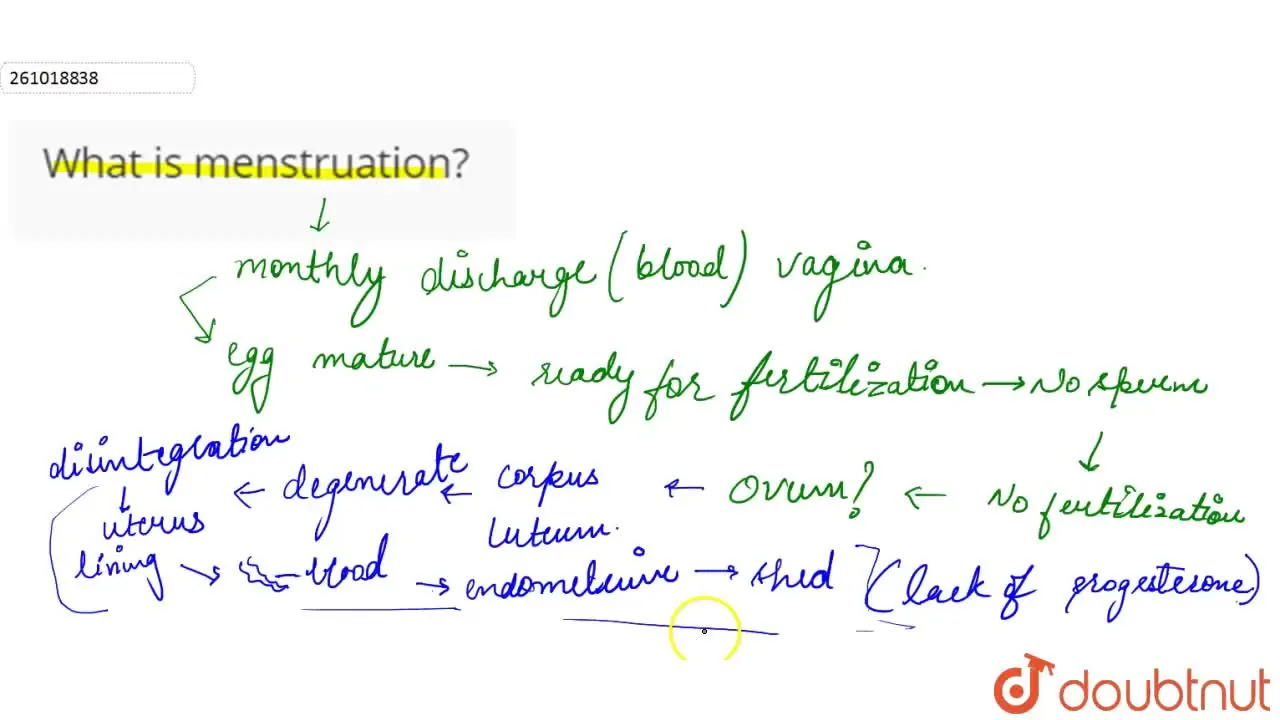 261018838
What is menstruation?
↓
monthly discharge (blood) vagina.
egg mature → ready for fertilization → No sperm
↓
disintegration ← degenerate ← corpus luteum. ← Ovum? ← No fertilization
↓
uterus
lining → blood → endometrium → shed (lack of progesterone)
doubtnut